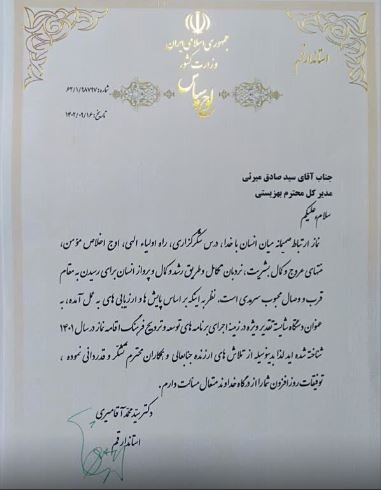 جمهوری اسلامی ایران
وزارت کشور
استانداری قم
لوح سپاس
شماره: ۶۲/۱/۱۸۷۹۷
تاریخ: ۱۴۰۲/۰۹/۱۶
جناب آقای سید صادق میرئی
مدیر کل محترم بهزیستی
سلام علیکم
نماز ارتباط صمیمانه میان انسان با خدا، درس شکرگزاری، راه اولیاء الهی، اوج اخلاص مؤمن،
منتهای عروج و کمال بشریت، نردبان تکامل و طریق رشد و کمال و پرواز انسان برای رسیدن به مقام
قرب و وصال محبوب سرمدی است. نظر به اینکه بر اساس پایش ها و ارزیابی های به عمل آمده، به
عنوان دستگاه شایسته تقدیر ویژه در زمینه اجرای برنامه های توسعه و ترویج فرهنگ اقامه نماز در سال ۱۴۰۱
شناخته شده اید لذا بدینوسیله از تلاش های ارزنده جنابعالی و همکاران محترم تشکر و قدردانی نموده ،
توفیقات روزافزون شما را از درگاه خداوند متعال مسألت دارم.
دکتر سید محمد آقامیری
استاندار قم